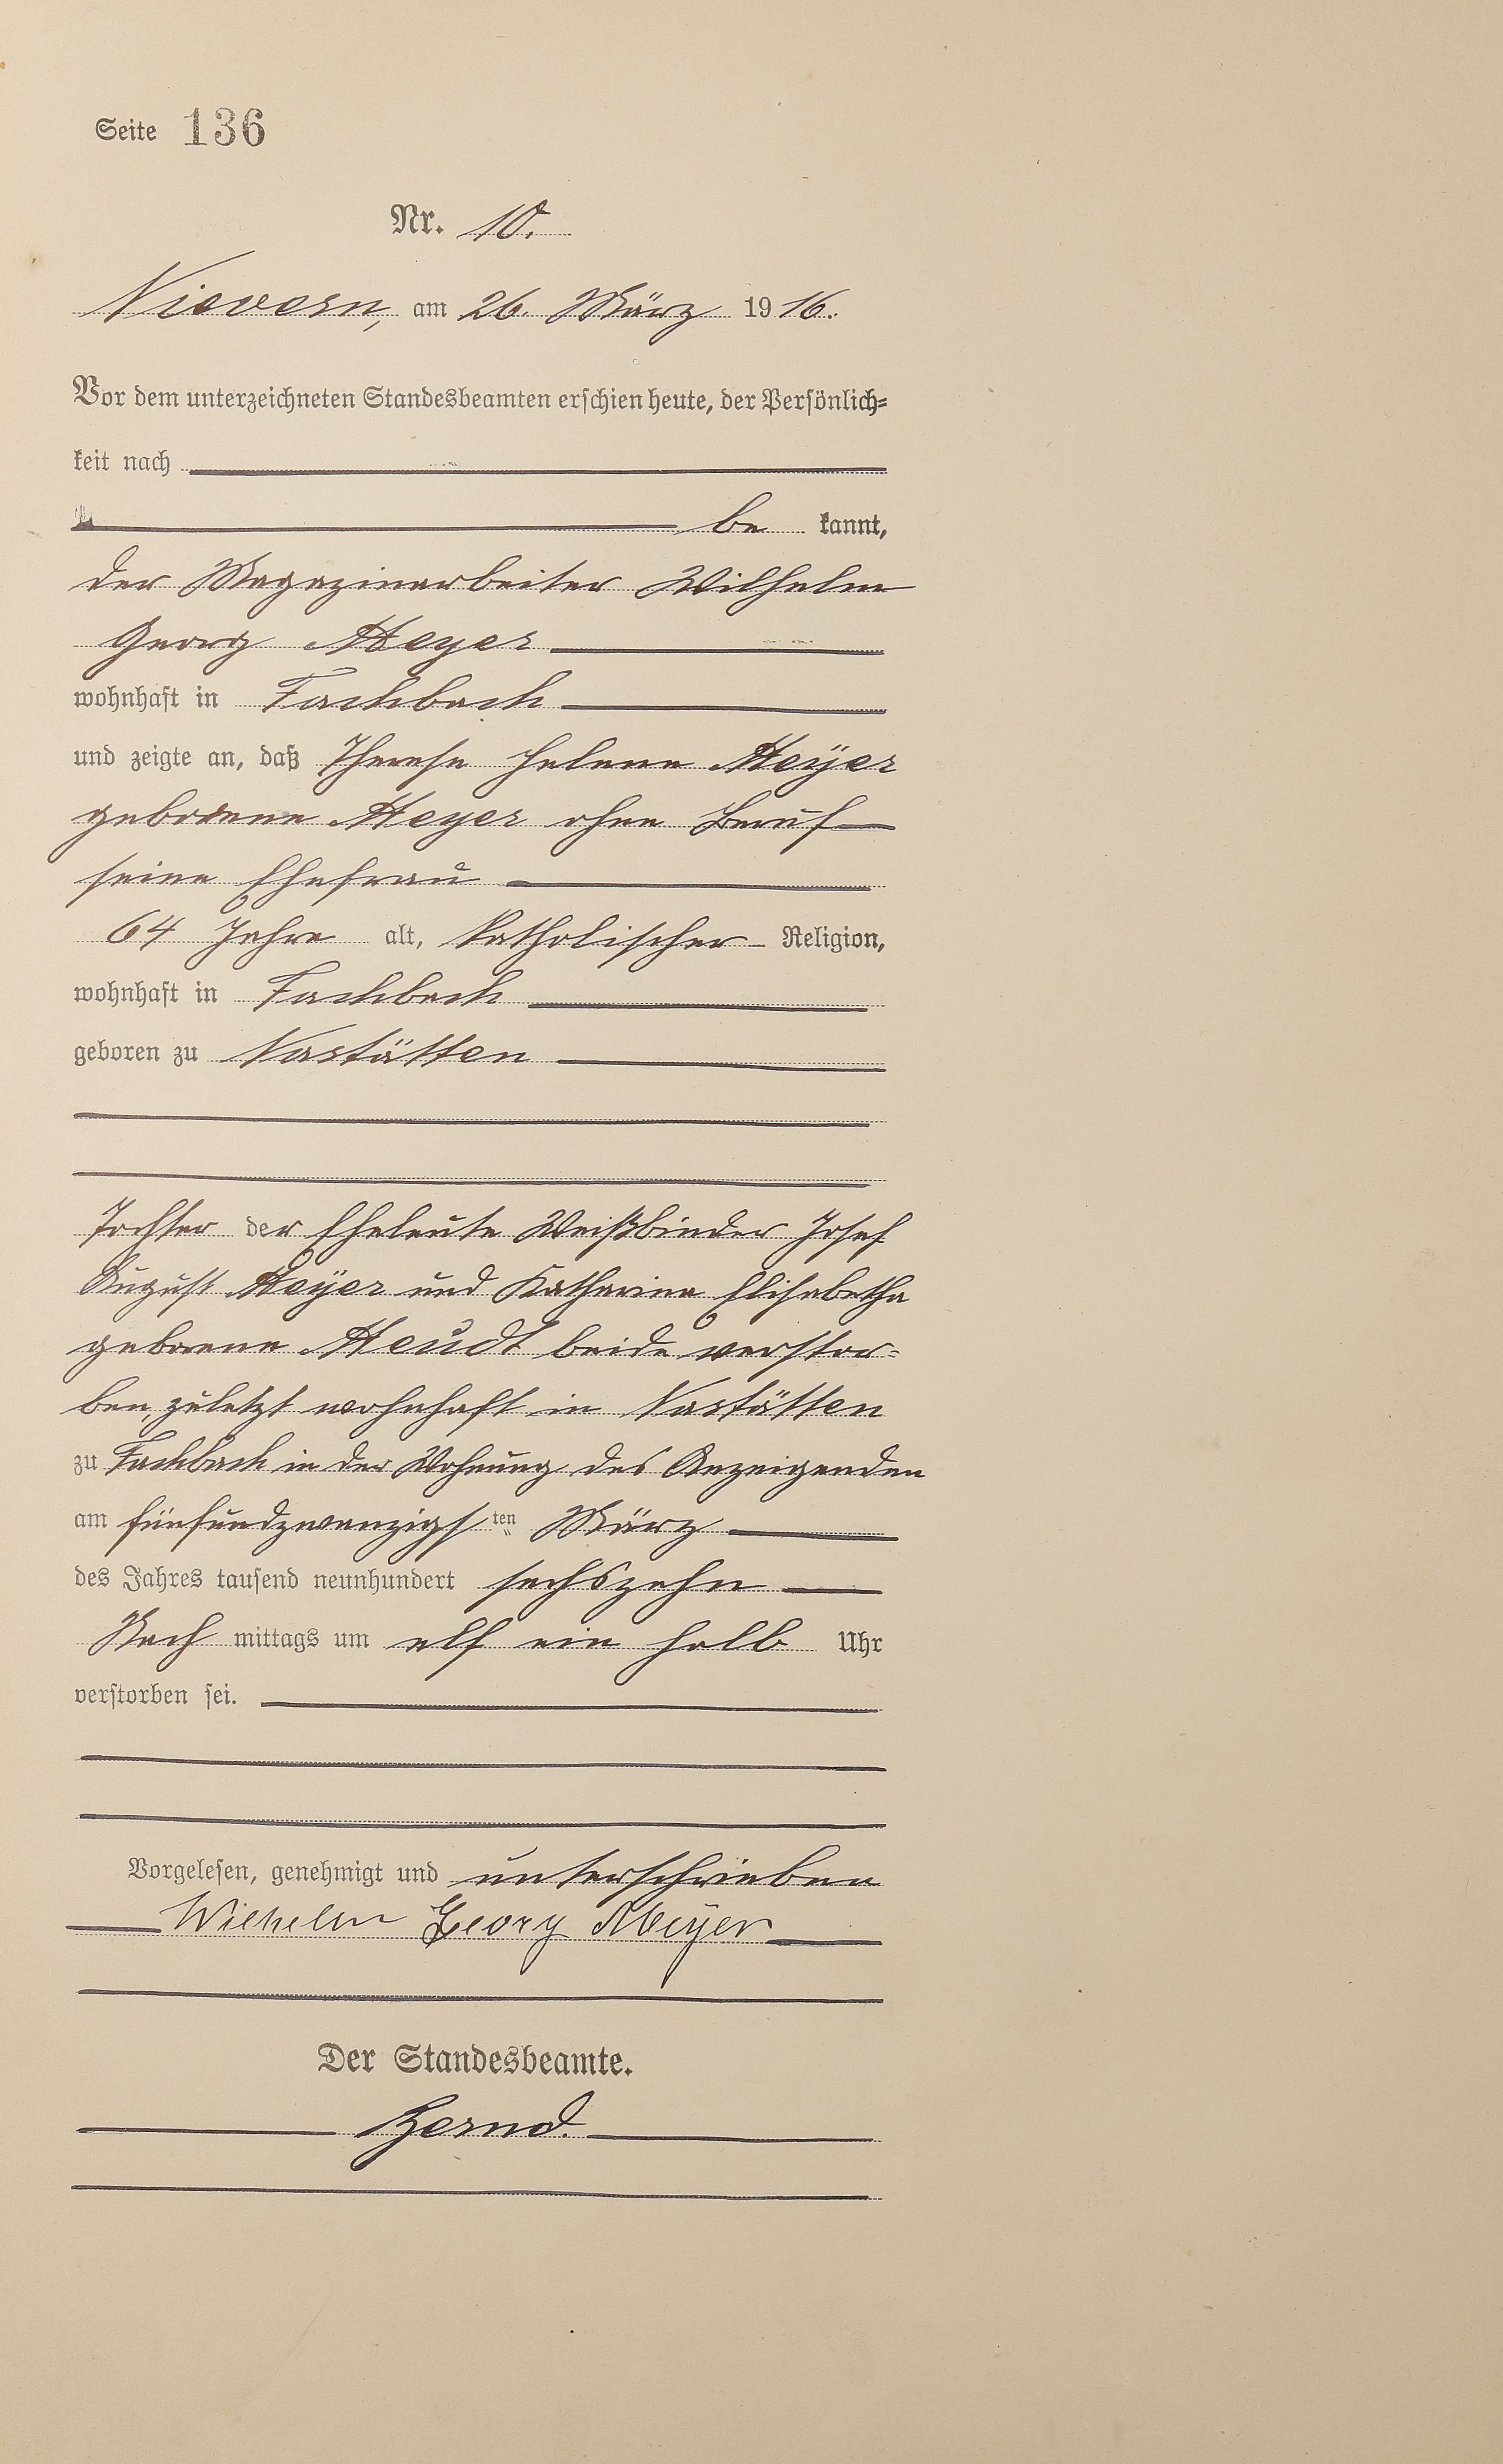 Seite 136
Nr. 10.
Nievern, am 26. März 1916.
Vor dem unterzeichneten Standesbeamten erschien heute, der Persönlich=
keit nach
be kannt,
der Magazinarbeiter Wilhelm
Georg Meyer
wohnhaft in Fachbach
und zeigte an, daß Therese Helene Meÿer
geborene Meyer ohne Beruf
seine Ehefrau
64 Jahre alt, katholischer Religion,
wohnhaft in Fachbach
geboren zu Nastätten
Tochter der Eheleute Weißbinder Josef
August Meÿer und Katharina Elisabetha
geborene Heudt beide verstor=
ben, zuletzt wohnhaft in Nastätten
zu Fachbach in der Wohnung des Anzeigenden
am fünfundzwanzigsten März
des Jahres tausend neunhundert sechszehn
Nach mittags um elf ein halb Uhr
verstorben sei.
Vorgelesen, genehmigt und unterschrieben
Wilhelm Georg Meÿer
Der Standesbeamte.